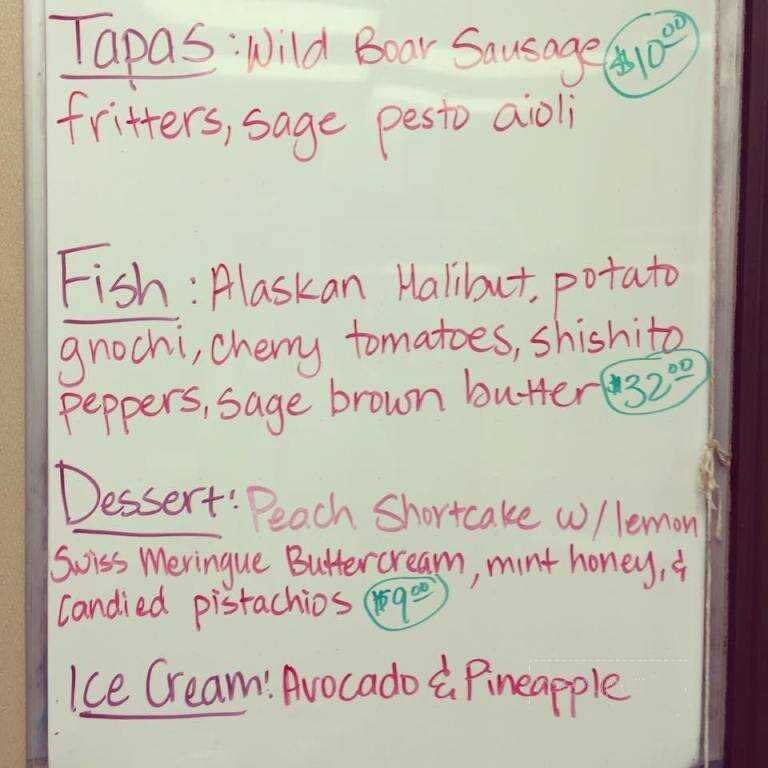 Tapas: Wild Boar Sausage $10.00
fritters, sage pesto aioli
Fish: Alaskan Halibut, potato
gnochi, cherry tomatoes, shishito
peppers, sage brown butter $32.00
Dessert: Peach Shortcake w/ lemon
Swiss Meringue Buttercream, mint honey, &
Candied pistachios $9.00
Ice Cream: Avocado & Pineapple